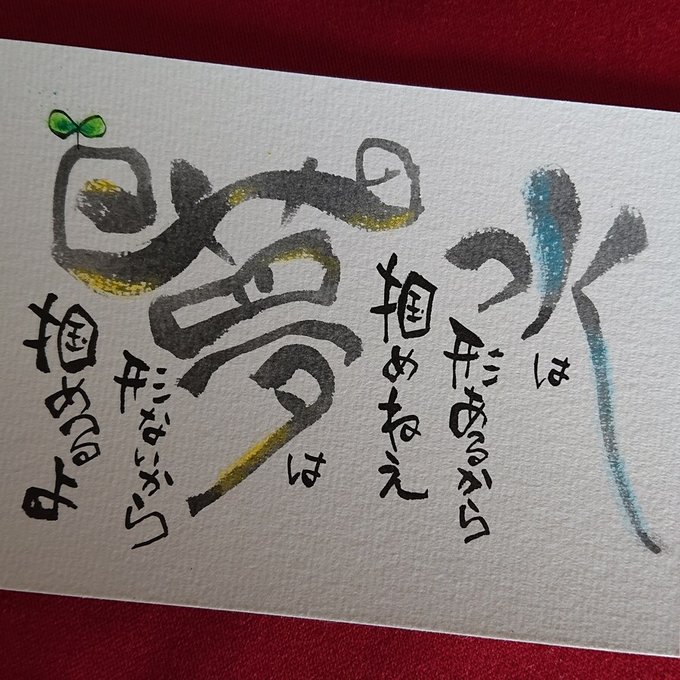 水は
形あるから
掴めねえ
夢は
形ないから
掴めるよ